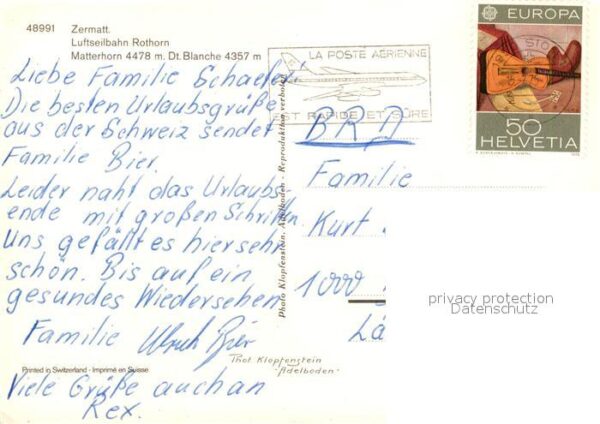 48991 Zermatt.
Luftseilbahn Rothorn
Matterhorn 4478 m. Dt. Blanche 4357 m
Liebe Familie Schaefer!
Die besten Urlaubsgrüße
aus der Schweiz sendet
Familie Bier.
Leider naht das Urlaubs
ende mit großen Schritten.
Uns gefällt es hier sehr
schön. Bis auf ein
gesundes Wiedersehen
Familie Ulrich Bier
Printed in Switzerland - Imprimé en Suisse
Viele Grüße auch an
Rex.
Photo Klopfenstein, Adelboden - Reproduktion verboten
Phot Klopfenstein
Adelboden.
LA POSTE AERIENNE
EST RAPIDE ET SÛRE
EUROPA
50
HELVETIA
BRD
Familie
Kurt
1000
privacy protection
Datenschutz